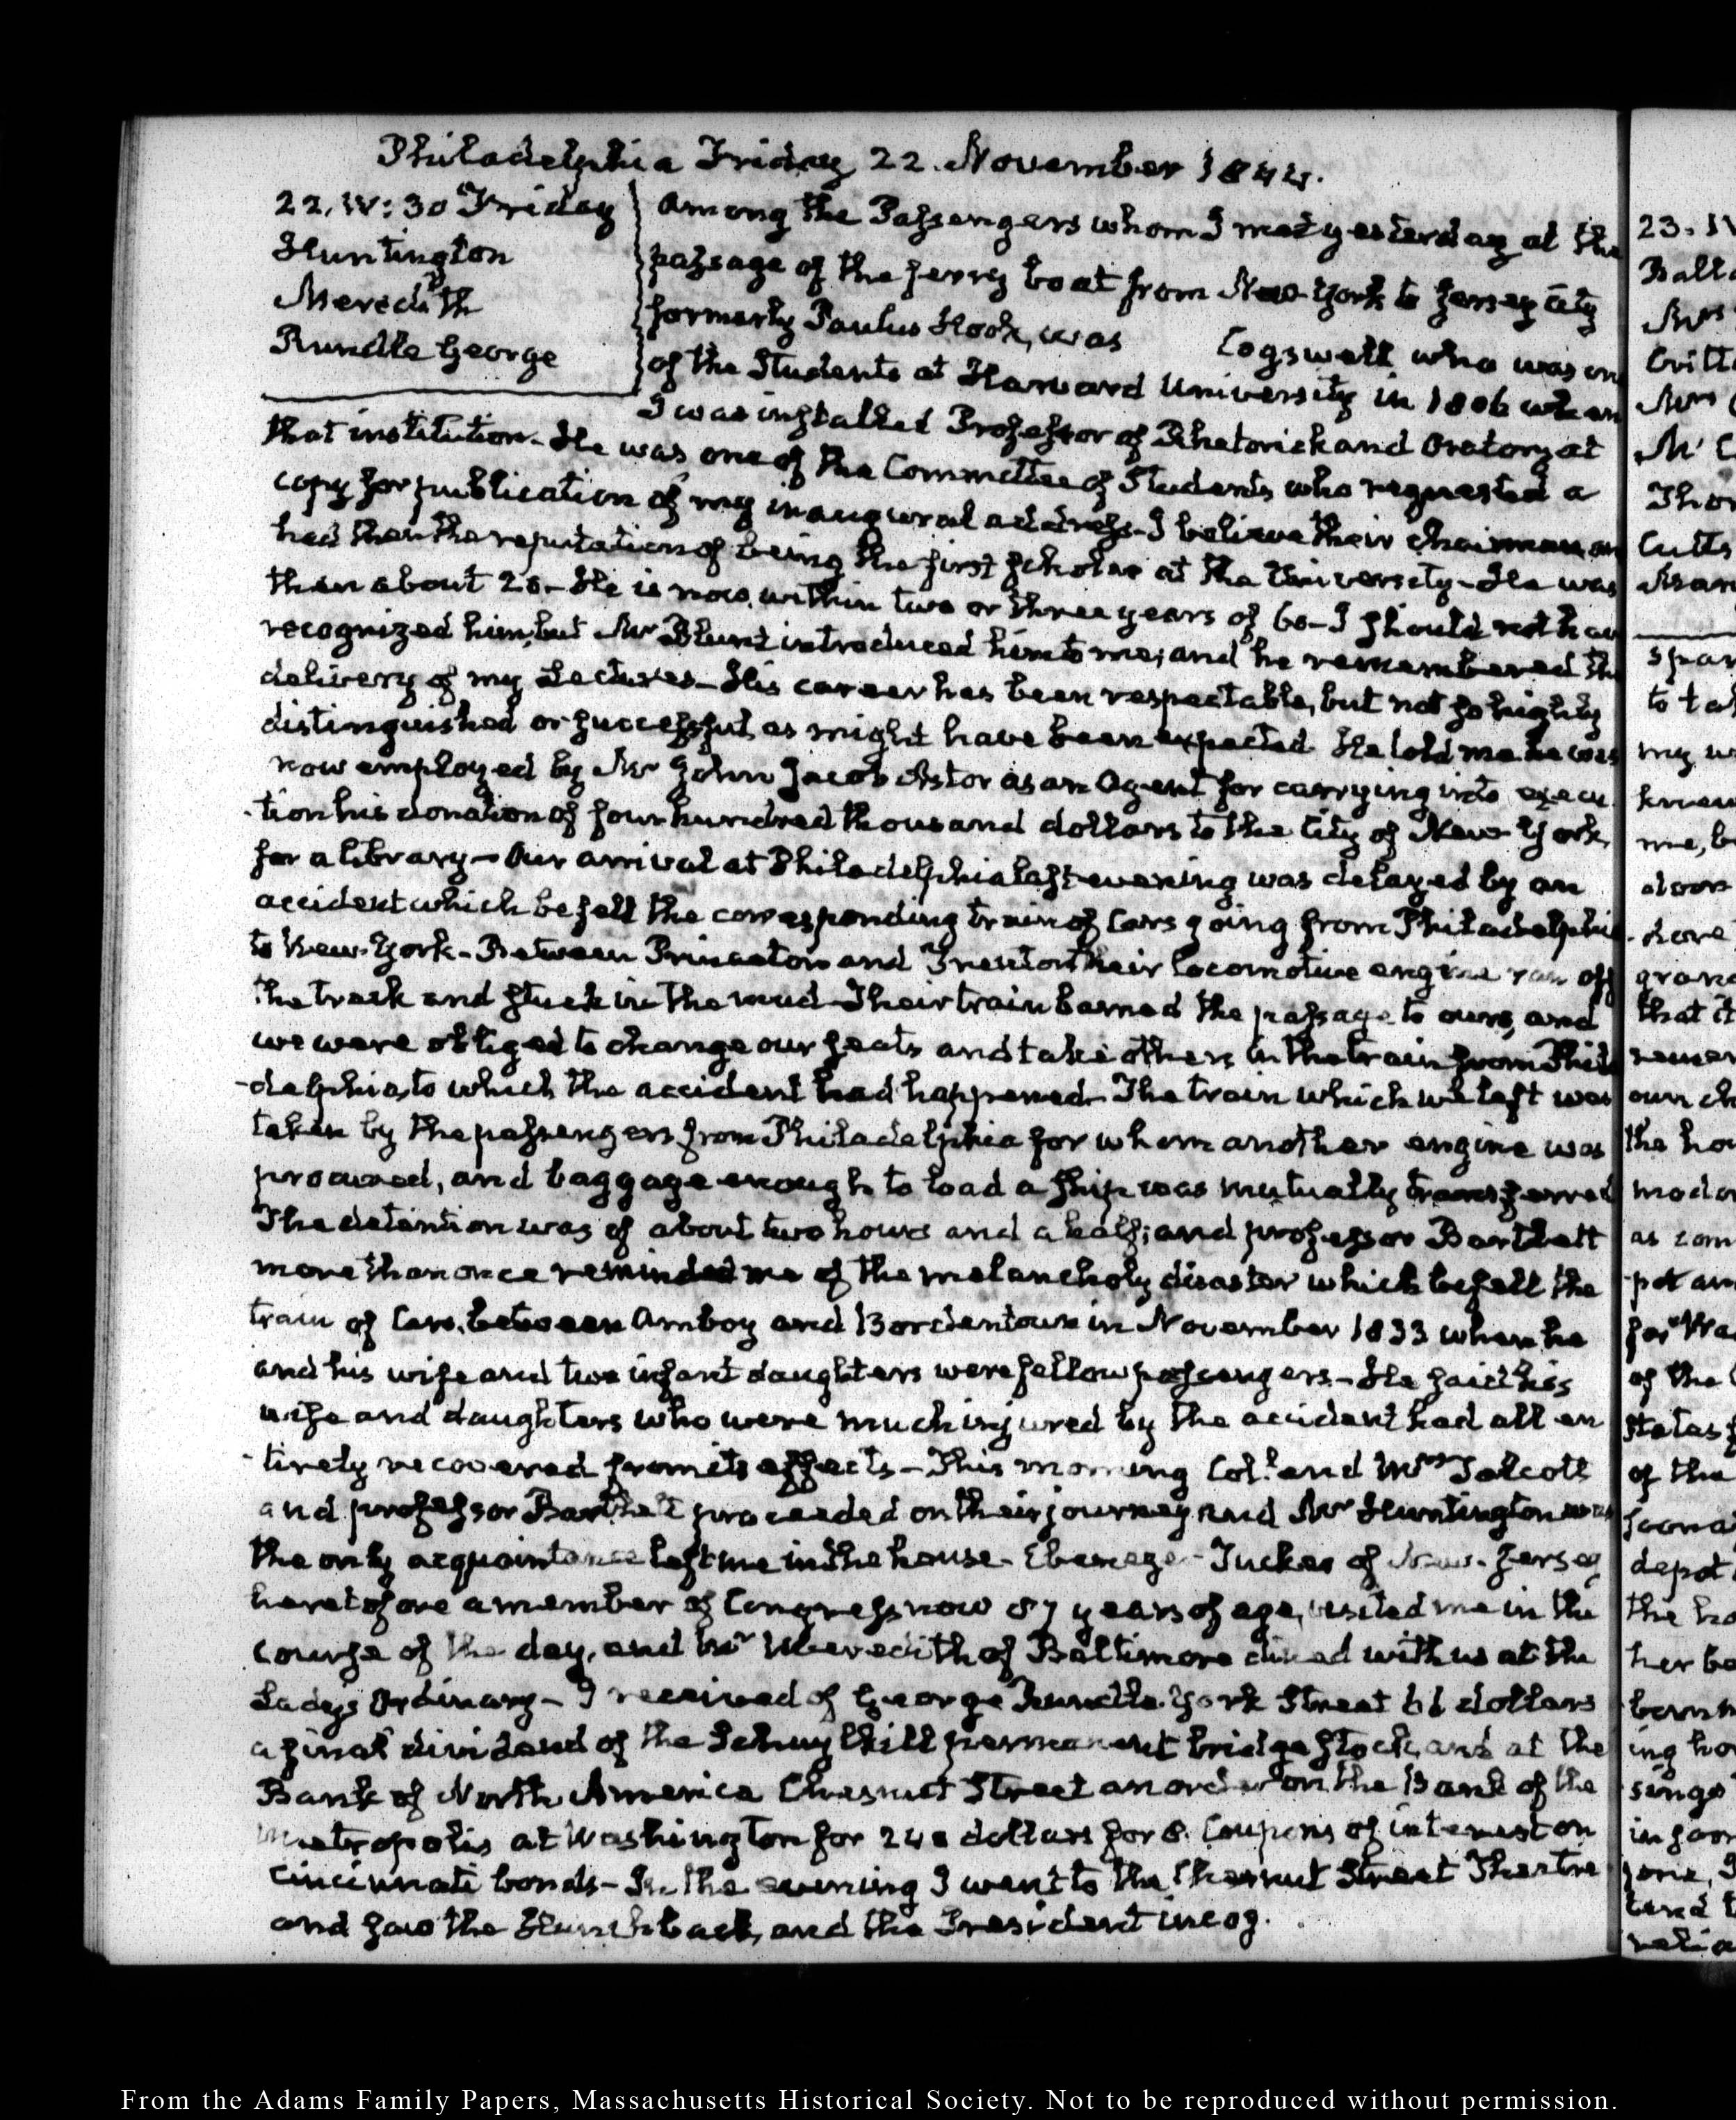 Philadelphia Friday 22. November 1844.
22. IV:30 Friday
Huntington
Meredith
Rundle George
Among the Passengers whom I met yesterday at the
passage of the ferry boat from New-York to Jersey city
formerly Paulus Hook, was Cogswell who was one
of the Students at Harvard University in 1806 when
I was installed Professor of Rhetorick and Oratory at
that institution- He was one of the Committee of Students who requested a
copy for publication of my inaugural address- I believe their chairman an
had then the reputation of being the first scholar at the University- He was
then about 20- He is now within two or three years of 60- I should not hav
recognized him, but Mr Blunt introduced him to me; and he remembered the
delivery of my Lectures- His career has been respectable, but not so highly
distinguished or successful, as might have been expected. He told me he was
now employed by Mr John Jacob Astor as an Agent for carrying into execu
-tion his donation of four hundred thousand dollars to the City of New-York,
for a library- Our arrival at Philadelphia last evening was delayed by an
accident which befell the corresponding train of Cars going from Philadelphia
to New-York- Between Princeton and Trenton their locomotive engine ran off
the track and stuck in the mud- Their train barred the passage to ours, and
we were obliged to change our seats and take others in the train from Phila
-delphia, to which the accident had happened- The train which we left was
taken by the passengers from Philadelphia for whom another engine was
procured, and baggage enough to load a ship was mutually transferred
The detention was of about two hours and a half; and professor Bartlett
more than once reminded me of the melancholy disaster which befell the
train of Cars, between Amboy and Bordentown in November 1833 when he
and his wife and two infant daughters were fellow passengers- He said his
wife and daughters who were much injured by the accident had all en
-tirely recovered from its effects- This morning Col. and Mrs Talcott
and professor Bartlett proceeded on their journey and Mr Huntington was
the only acquaintance left me in the house- Ebenezer Tucker of New-Jersey
heretofore a member of Congress now 87 years of age, visited me in the
course of the day, and Mr Meredith of Baltimore dined with us at the
Ladys Ordinary- I received of George Rundle York Street 61 dollars
a final dividend of the Schuylkill permanent bridge stock, and at the
Bank of North America Chesnut Street an order on the Bank of the
Metropolis at Washington for 240 dollars for 8. Coupons of interest on
Cincinnati bonds- In the evening I went to the Chesnut Street Theatre
and saw the Hunchback, and the President incog.
23. IV
Balt
Mrs
Critt
Mrs
Mr C
Thor
Cutts
Mar
spar
to ta
my w
knew
me, b
door
-dore
gran
that it
our ch
the ho
moda
as com
-pot an
for Wa
of the
States
of the
depot
the ho
her bo
born
ing ho
sings
in
From the Adams Family Papers, Massachusetts Historical Society. Not to be reproduced without permission.